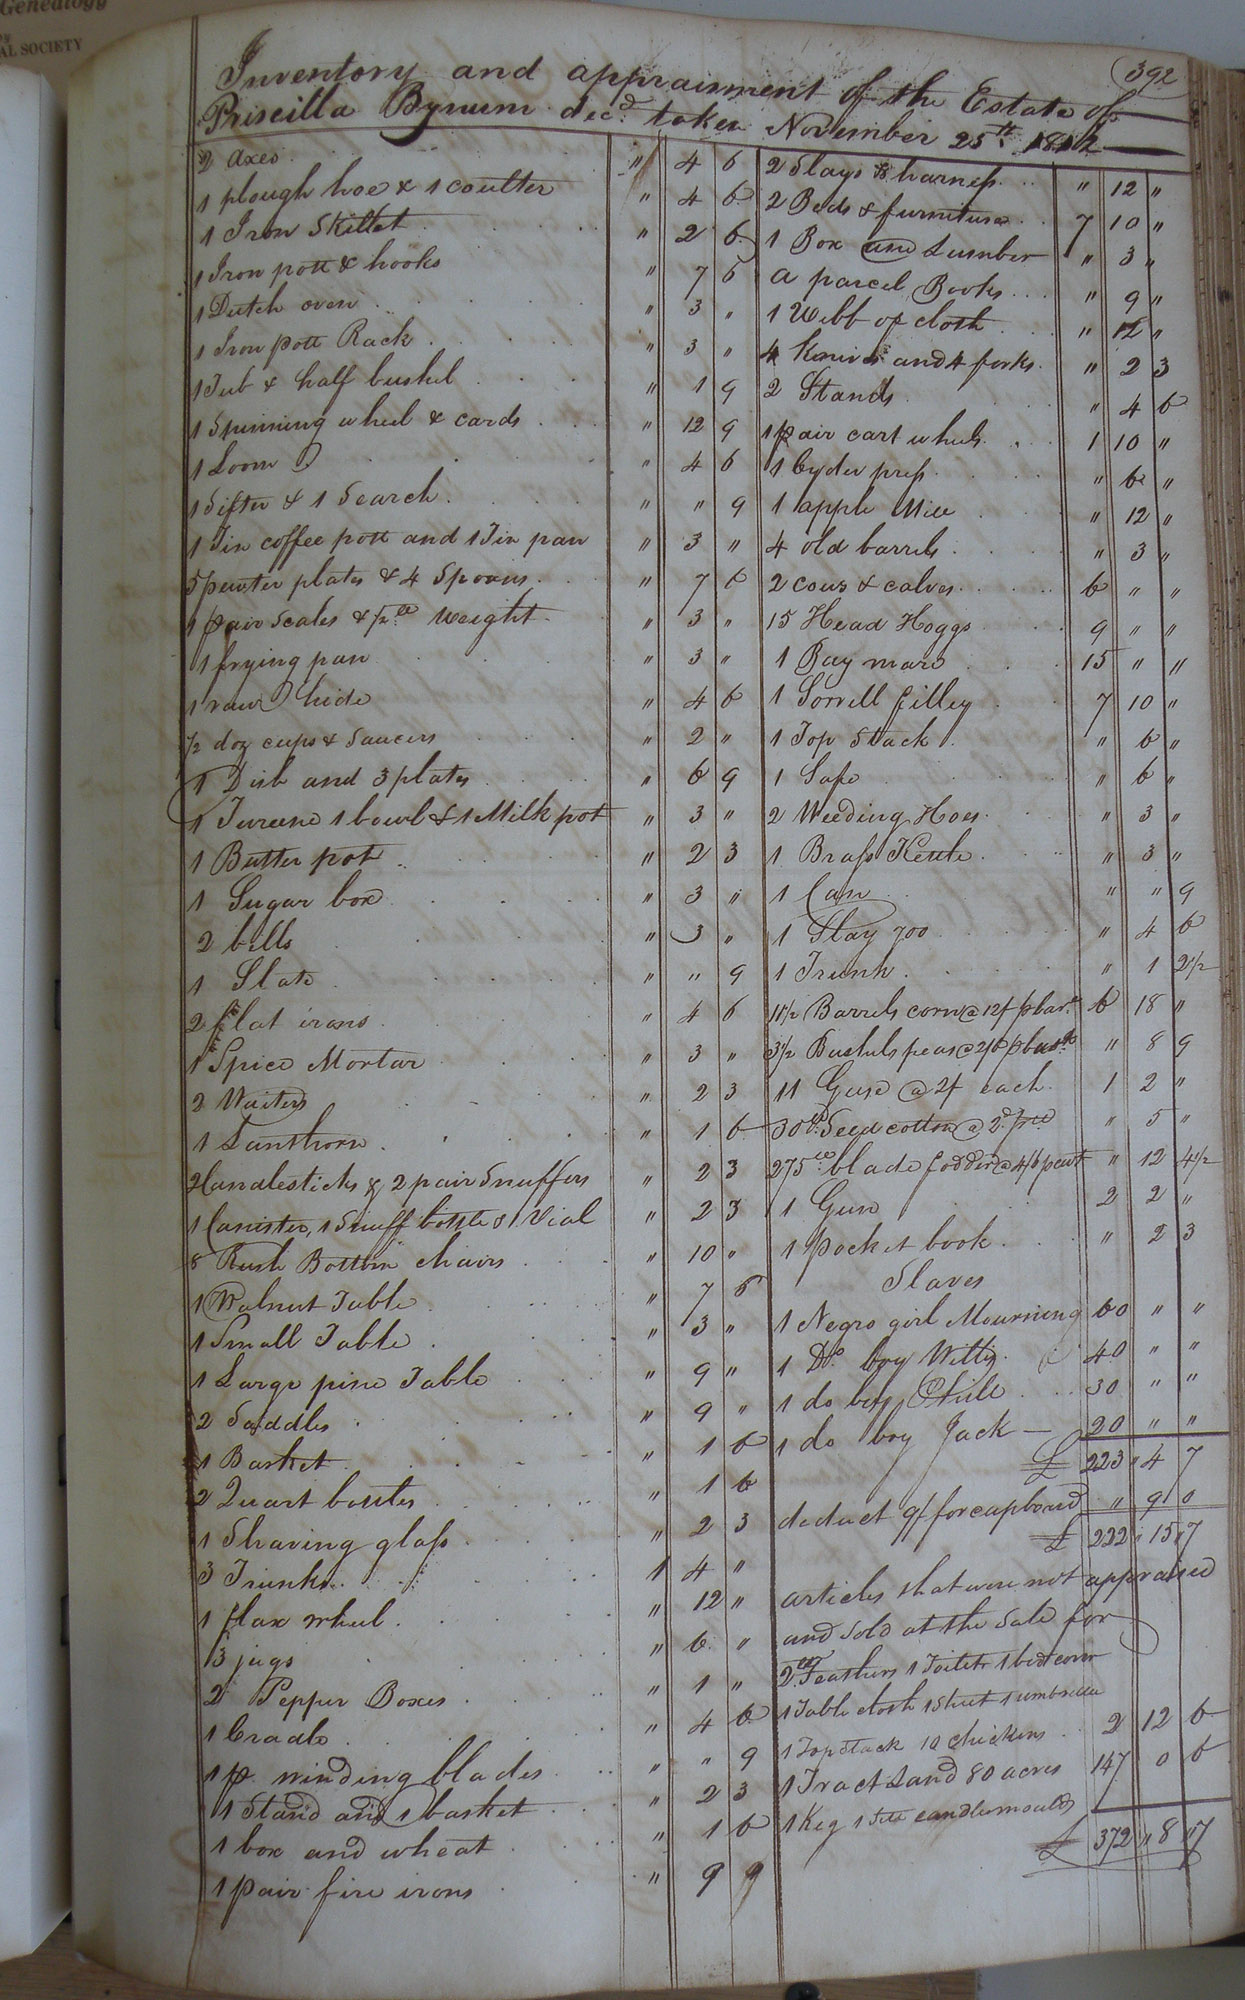 Genealogy
AL SOCIETY
392
Inventory and appraisment of the Estate of
Priscilla Bynum decd. taken November 25th 1812
2 Axes " 4 6
1 plough hoe & 1 coulter " 4 6
1 Iron Skillet " 2 6
1 Iron pott & hooks " 7 6
1 Dutch oven " 3 "
1 Iron pott Rack " 3 "
1 Tub & half bushel " 1 9
1 Spinning wheel & cards " 12 9
1 Loom " 4 6
1 Sifter & 1 Search " " 9
1 Tin coffee pott and 1 Tin pan " 3 "
5 pewter plates & 4 Spoons " 7 6
1 pair Scales & 1/2 lb weight " 3 "
1 frying pan " 3 "
1 raw hide " 4 6
1/2 doz cups & Saucers " 2 "
1 Dish and 3 plates " 6 9
1 Tureene 1 bowl & 1 Milk pot " 3 "
1 Butter pot " 2 3
1 Sugar box " 3 "
2 bells " 3 "
1 Slate " " 9
2 flat irons " 4 6
1 Spice Mortar " 3 "
2 Waiters " 2 3
1 Lanthorn " 1 6
2 Candlesticks & 2 pair Snuffers " 2 3
1 Canister, 1 Snuff bottle & 1 Vial " 2 3
8 Rush Bottom chairs " 10 "
1 Walnut Table " 7 6
1 Small Table " 3 "
1 Large pine Table " 9 "
2 Saddles " 9 "
1 Basket " 1 6
2 Quart bottles " 1 6
1 Shaving glass " 2 3
3 Trunks 1 4 "
1 flax wheel " 12 "
3 jugs " 6 "
2 Pepper Boxes " 1 "
1 Cradle " 4 6
1 p. winding blades " " 9
1 Stand and 1 basket " 2 3
1 box and wheat " 1 6
1 pair fire irons " 9 9
2 Slays & harness " 12 "
2 Beds & furniture 7 10 "
1 Box and Lumber " 3 "
a parcel Books " 9 "
1 Webb of cloth " 12 "
4 knives and 4 forks " 2 3
2 Stands " 4 6
1 pair cart wheels 1 10 "
1 Cyder press " 6 "
1 apple Mill " 12 "
4 old barrels " 3 "
2 cows & calves 6 " "
15 Head Hoggs 9 " "
1 Bay mare 15 " "
1 Sorrell filley 7 10 "
1 Top Stack " 6 "
1 Safe " 6 "
2 Weeding Hoes " 3 "
1 Brass Kettle " 3 "
1 Can " " 9
1 Slay 700 " 4 6
1 Trunk " 1 2 1/2
11 1/2 Barrels corn @ 12/ p bar. 6 18 "
3 1/2 Bushels peas @ 2/6 p bush " 8 9
11 Geese @ 2/ each 1 2 "
30 lb Seed cotton @ 2d " 5 "
275 lb blade fodder @ 4/6 p cwt " 12 4 1/2
1 Gun 2 2 "
1 pocket book " 2 3
Slaves
1 Negro girl Mourning 60 " "
1 Do. boy Willis 40 " "
1 do boy 30 " "
1 do boy Jack 20 " "
£ 223 " 4 7
deduct 9/ for cupboard " 9 0
£ 222 " 15 " 7
articles that were not appraised
and Sold at the Sale for
2 lb Feathers 1 Toilet 1 bed cover
1 Table cloth 1 Sheet 1 umbrella
1 Top Stack 10 chickens 2 12 6
1 Tract Land 80 acres 147 0 6
1 Keg 1 Sett candlemoulds
£ 372 " 8 " 7